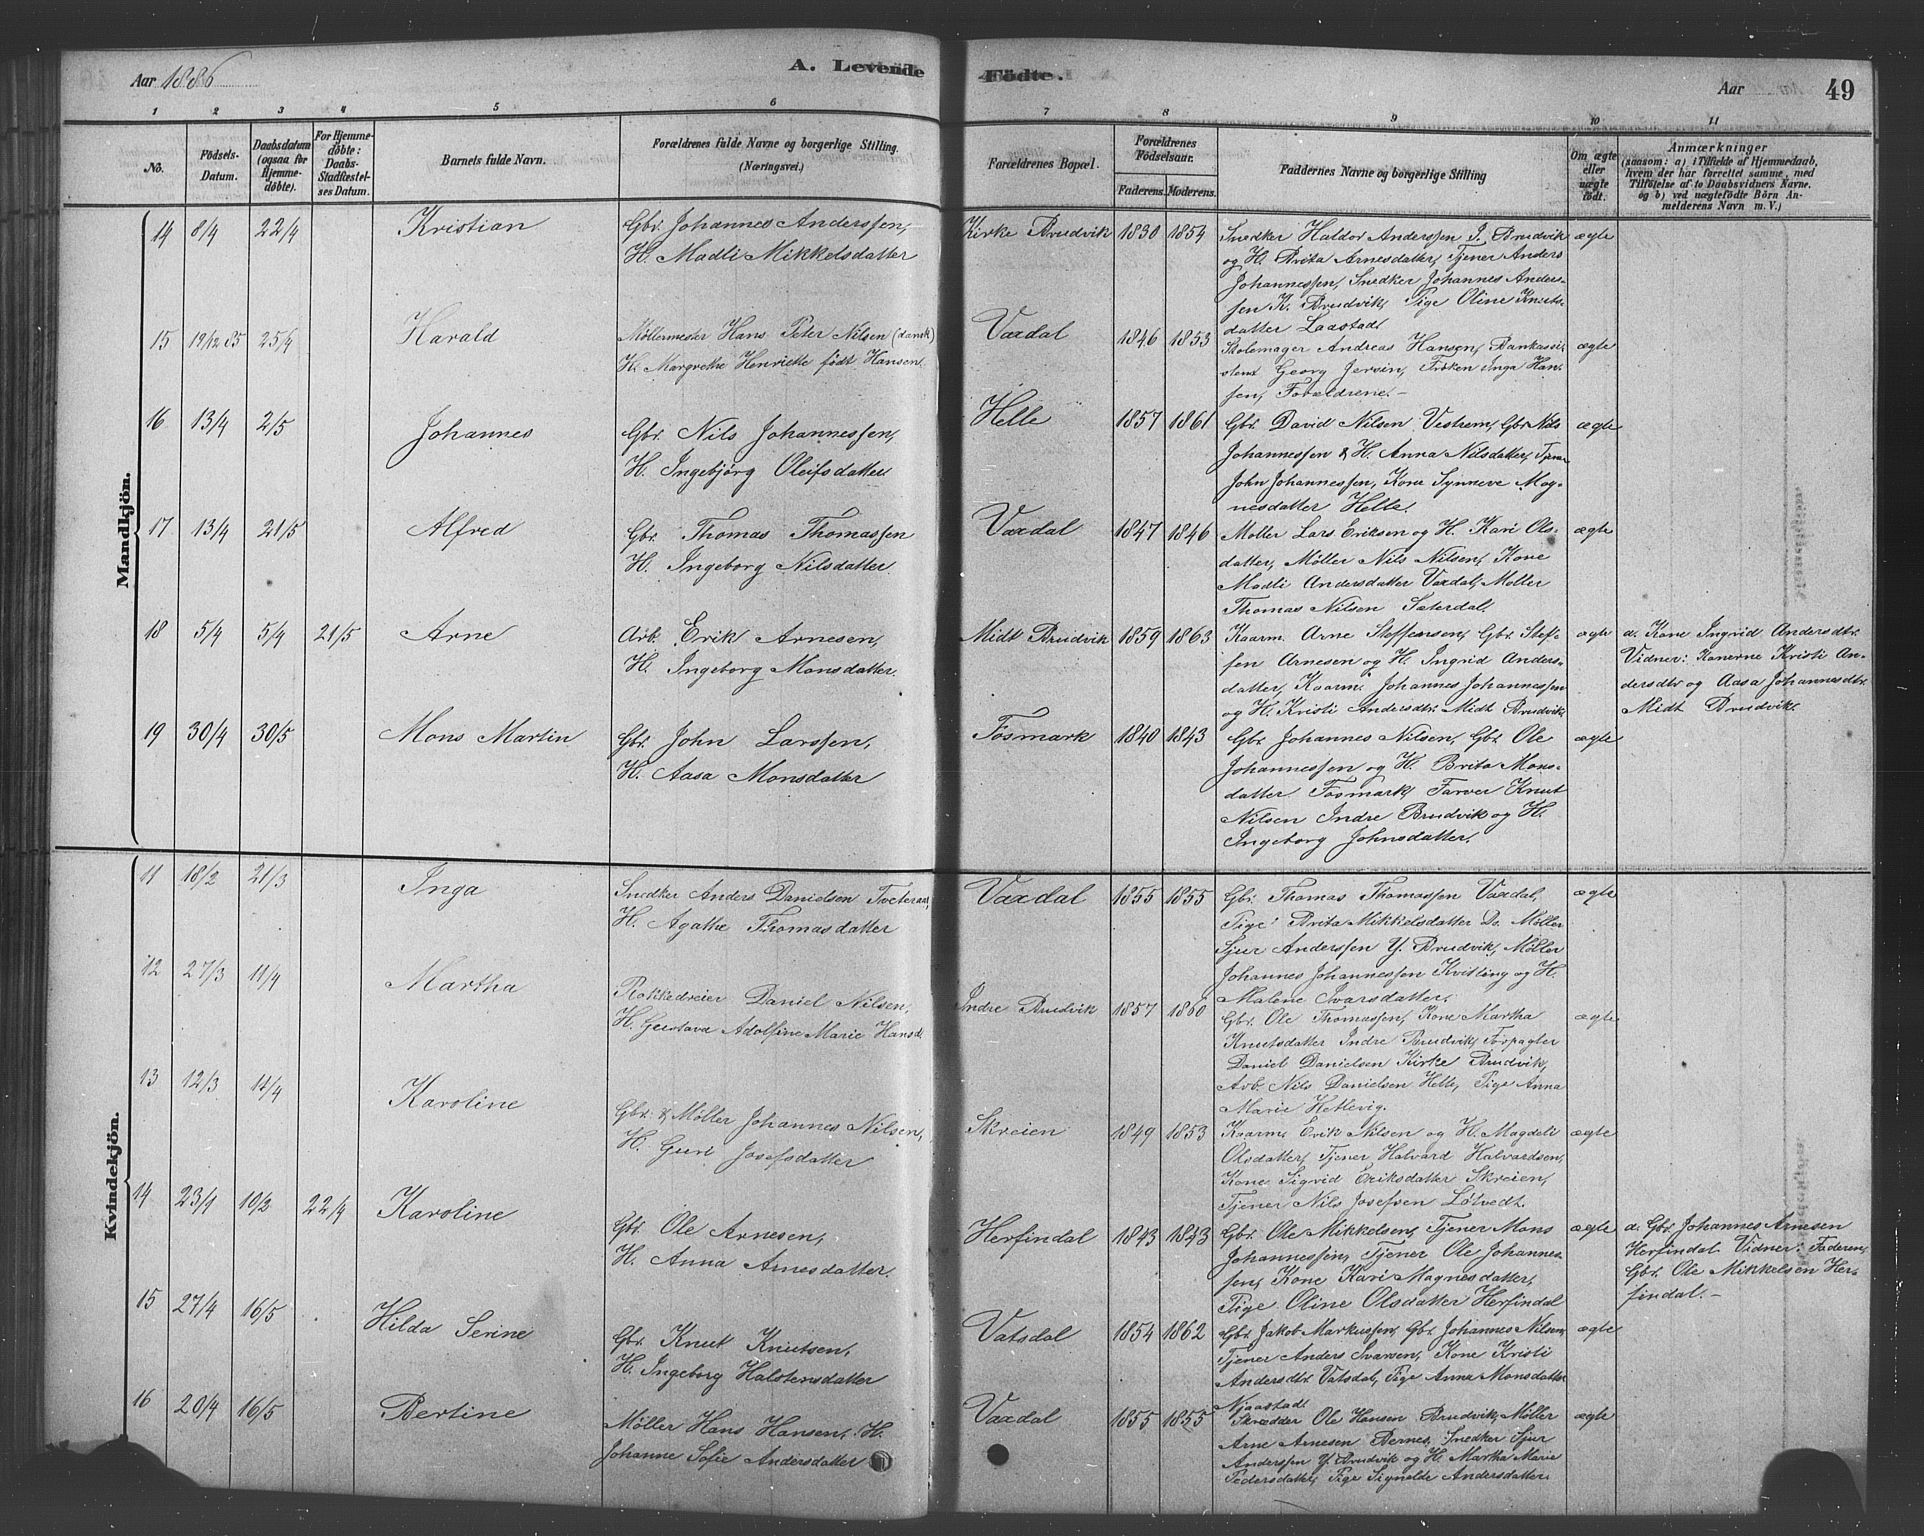 Aar 1886
A. Levende
Födte.
Aar
49
1 2 3 4 5 6 7 8 9 10 11
No.
Födsels-Datum.
Daabsdatum (ogsaa for Hjemmedöbte).
For Hjemmedöbte: Daabs-Stadfæstelses Datum.
Barnets fulde Navn.
Forældrenes fulde Navne og borgerlige Stilling. (Næringsvei.)
Forældrenes Bopæl.
Forældrenes Födselsaar.
Faderens. Moderens.
Faddernes Navne og borgerlige Stilling
Om ægte eller uægte födt.
Anmærkninger
(saasom: a) i Tilfælde af Hjemmedaab, hvem der har forrettet samme, med Tilföielse af to Daabsvidners Navne. og b) ved uægtefödte Börn Anmelderens Navn m. V.)
Mandkjön.
14 8/4 22/4 Kristian
Gbr. Johannes Anderssen,
H. Madli Mikkelsdatter
Kirke Brudvik 1830 1854
Snedker Haldor Anderssen I. Brudvik
og H. Brita Arnesdatter, Tjener Anders
Johannessen, Snedker Johannes Anders-
sen K. Brudvik, Pige Oline Knuts-
datter Laastad.
ægte
15 19/12 85 25/4 Harald
Møllermester Hans Peter Nilsen (dansk)
H. Margrethe Henriette født Hansen.
Vaxdal 1846 1853
Skolemager Andreas Hansen, Bankassi-
stent Georg Jersin, Frøken Inga Han-
sen, Forældrene.-
ægte
16 13/4 2/5 Johannes
Gbr. Nils Johannessen,
H. Ingebjörg Oleifsdatter
Helle 1857 1861
Gbr. David Nilsen Vestrem, Gbr Nils
Johannessen & H. Anna Nilsdatter, Tjener
John Johannessen, Kone Synneve Mag-
nesdatter Helle.
ægte
17 13/4 21/5 Alfred
Gbr. Thomas Thomassen
H. Ingeborg Nilsdatter.
Vaxdal 1847 1846
Møller Lars Eriksen og H. Kari Ols-
datter, Møller Nils Nilsen, Kone
Madli Andersdatter Vaxdal, Møller
Thomas Nilsen Saterdal,
ægte
18 5/4 5/4 21/5 Arne
Arb. Erik Arnesen,
H. Ingeborg Monsdatter.
Midt Brudvik 1859 1863
Kaarm. Arne Steffensen, Gbr. Stef-
fen Arnesen og H. Ingrid Anders-
datter, Kaarm. Johannes Johannessen
og H. Kristi Andersdtr. Midt Brudvik
ægte
d. Kone Ingrid Andersdtr.
Vidner: Konerne Kristi An-
dersdtr og Aasa Johannesdtr.
Midt Brudvik.
19 30/4 30/5 Mons Martin
Gbr. John Larssen,
H. Aasa Monsdatter
Fosmark 1840 1843
Gbr. Johannes Nilsen, Gbr. Ole
Johannessen og H. Brita Mons-
datter Fosmark, Farver Knut
Nilsen Indre Brudvik og H.
Ingeborg Johnsdatter.
ægte
Kvindekjön.
11 18/2 21/3 Inga
Snedker Anders Danielsen Tveteraas,
H. Agathe Thomasdatter
Vaxdal 1855 1855
Gbr. Thomas Thomassen Vaxdal,
Pige Brita Mikkelsdatter Do. Møller
Sjur Anderssen Y. Brudvik, Møller
Johannes Johannessen Kvitling og H.
Malene Ivarsdatter.
ægte
12 27/3 11/4 Martha
Rokkedreier Daniel Nilsen,
H. Gustava Adolfine Marie Hansd.
Indre Brudvik 1857 1860
Gbr. Ole Thomassen, Kone Martha
Knutsdatter Indre Brudvik, Forpagter
Daniel Danielsen Kirke Brudvik,
Arb. Nils Danielsen Helle, Pige Anna
Marie Hetlevig.
ægte
13 12/3 14/4 Karoline
Gbr. & Møller Johannes Nilsen,
H. Guri Josefsdatter
Skreien 1849 1853
Kaarm. Erik Nilsen og H. Magdeli
Olsdatter, Tjener Halvard Halvardsen,
Kone Sigrid Eriksdatter Skreien,
Tjener Nils Josefsen Løtvedt.
ægte
14 23/1 10/2 22/4 Karoline
Gbr. Ole Arnesen,
H. Anna Arnesdatter.
Herfindal 1843 1843
Gbr. Ole Mikkelsen, Tjener Mons
Johannessen, Tjener Ole Johannes-
sen, Kone Kari Magnesdatter,
Pige Oline Olsdatter Herfindal
ægte
d. Gbr. Johannes Arnesen
Herfindal. Vidner: Faderen,
Gbr. Ole Mikkelsen Her-
findal.-
15 27/4 16/5 Hilda Serine
Gbr. Knut Knutsen,
H. Ingeborg Halstensdatter
Vatsdal 1854 1862
Gbr. Jakob Markussen, Gbr. Johannes Nilsen,
Tjener Anders Ivarsen, Kone Kristi
Andersdtr. Vatsdal, Pige Anna Monsdatter
Njaastad
ægte
16 20/4 16/5 Bertine
Møller Hans Hansen, H.
Johanne Sofie Andersdatter
Vaxdal 1855 1855
Skrædder Ole Hansen Brudvik, Møller
Arne Arnesen Bernes, Snedker Sjur
Anderssen Y. Brudvik og H. Martha Marie
Pedersdatter, Pige Signelde Andersdatter.
ægte